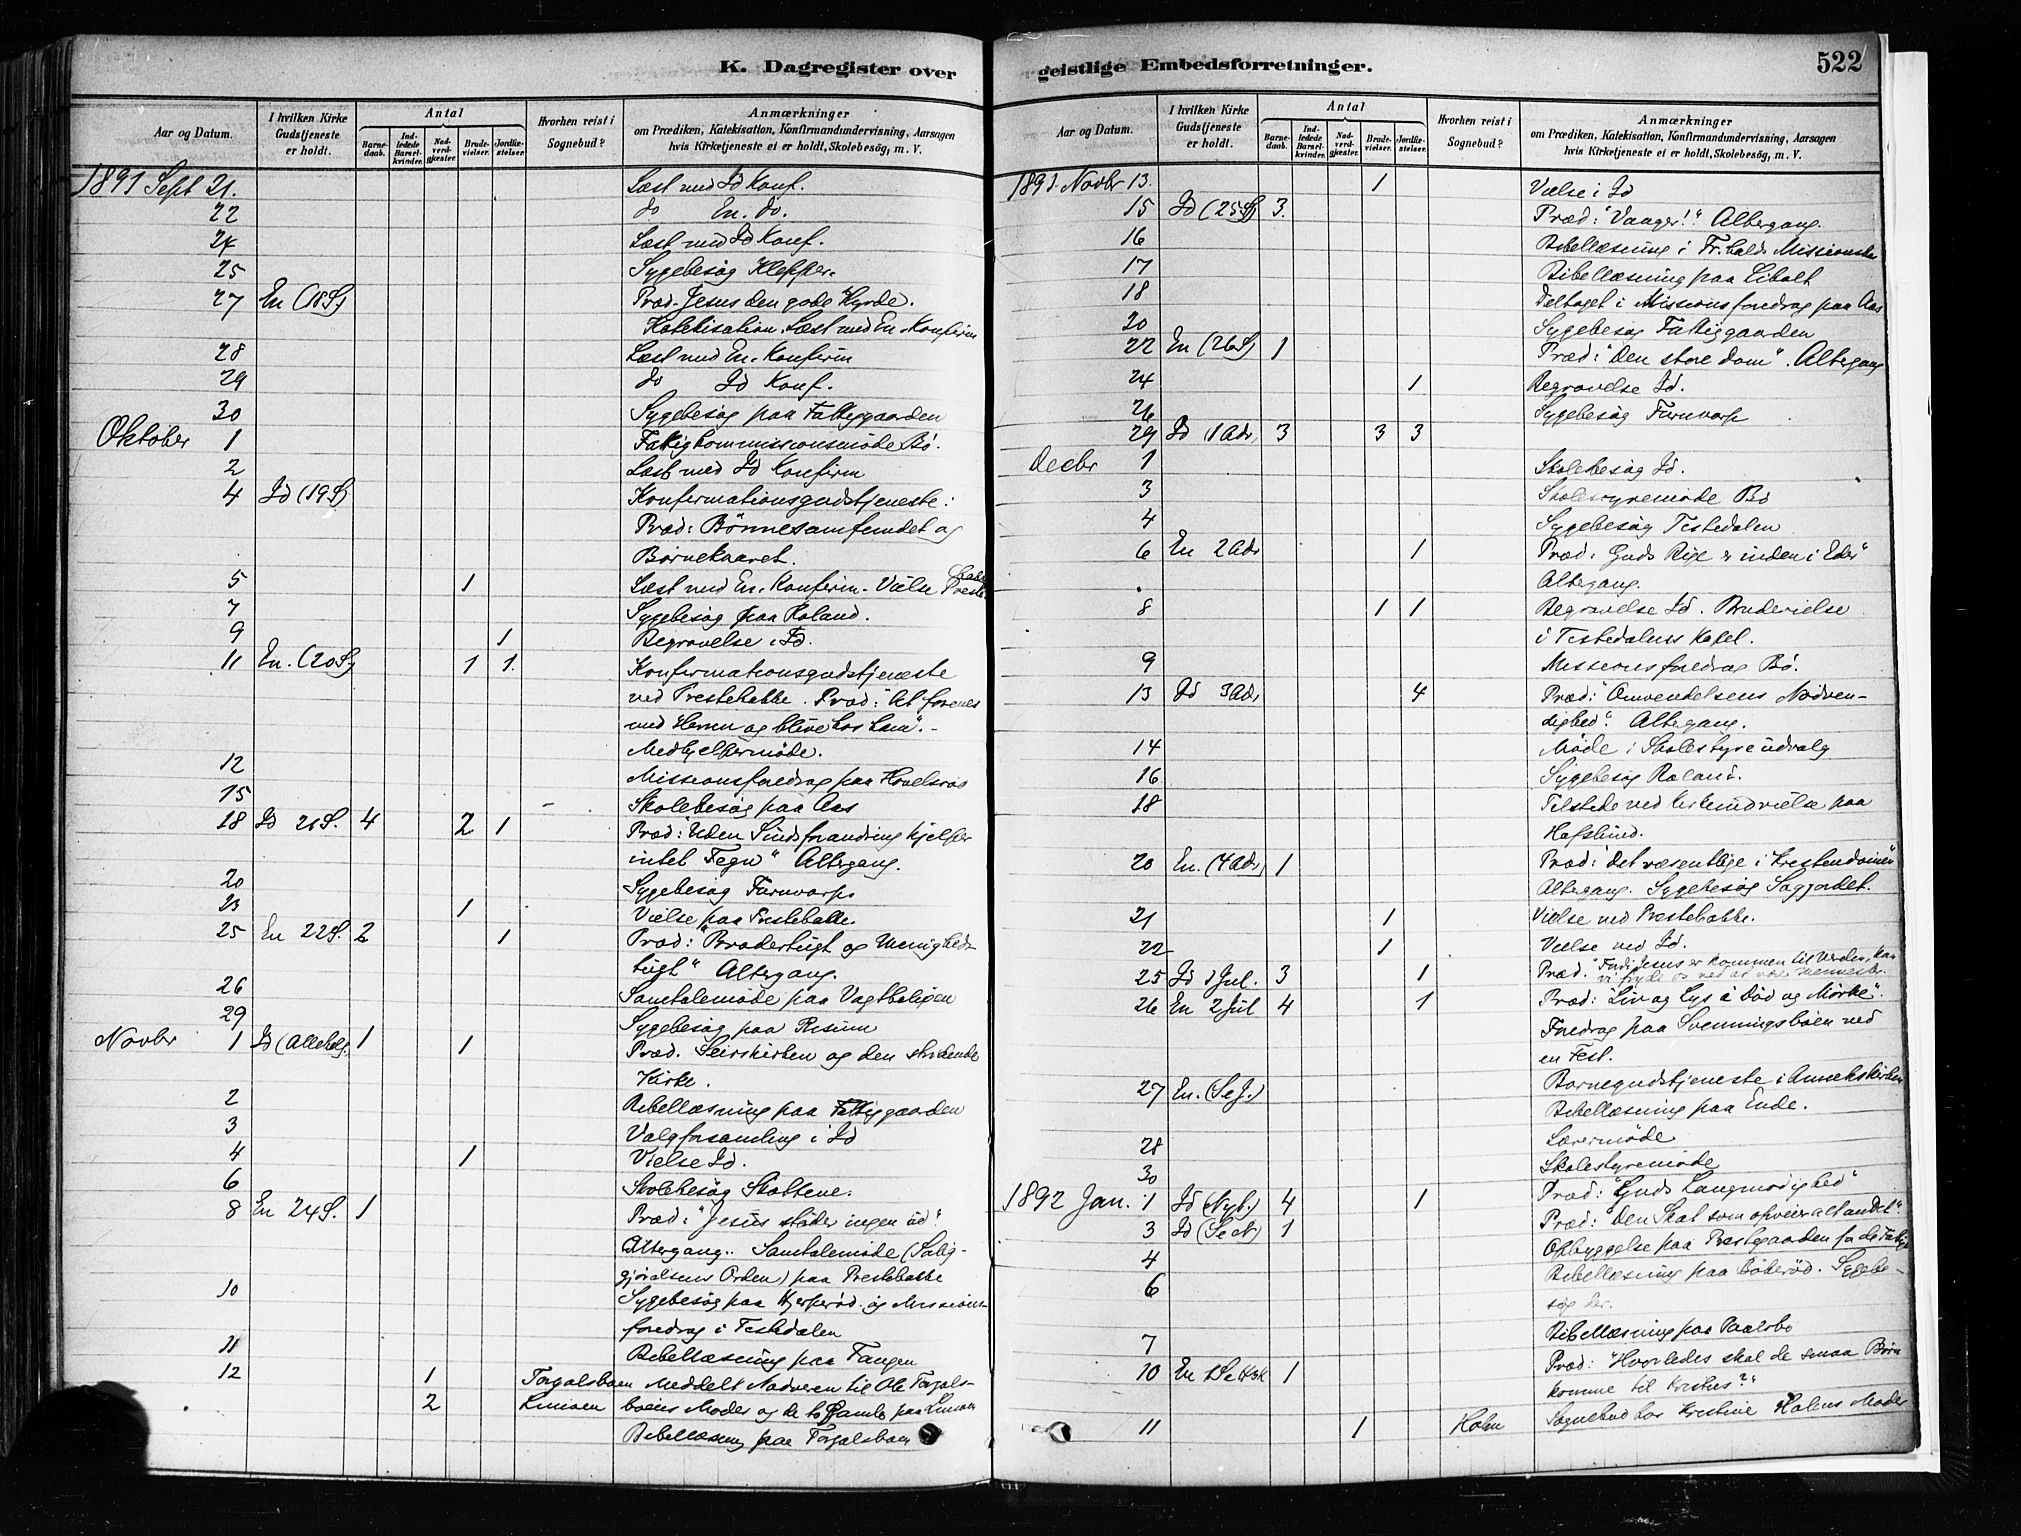 K. Dagregister over
Aar og Datum.
I hvilken Kirke Gudstjeneste er holdt.
Antal
Barnedaab.
Indledede Barselkvinder.
Nadverdgjæster.
Brudevielser.
Jordfæstelser.
Hvorhen reist i Sognebud?
Anmærkninger
om Prædiken, Katekisation, Konfirmandundervisning, Aarsagen
hvis Kirketjeneste ei er holdt, Skolebesøg, m. V.
1891 Sept 21. Læst med Id Konf.
22 do En. do.
24 Læst med Id Konf.
25 Sygebesøg Klepper.
27 En (18 S) Præd. Jesus den gode Hyrde.
Katekisation. Læst med En. Konfirm
28 Læst med En. Konfirm
29 do Id Konf.
30 Sygebesøg paa Fattiggaarden
Oktober 1 Fattigkommissionsmøde Bø.
2 Læst med Id Konfirm
4 Id (19 S) Konfirmationsgudstjeneste:
Præd: Bønnesamfundet og
Børnekaaret.
5 1 Læst med En. Konfirm. Vielse
7 Sygebesøg paa Roland.
9 1 Begravelse i Id.
11 En. (20 S) 1 1. Konfirmationsgudstjeneste
ved Prestebakke. Præd: "At forenes
med Herren og blive hos ham".-
Medhjelpermøde.
12 Missionsforedrag paa
15 Skolebesøg paa Aas
18 Id 21 S. 4 2 1 Præd: "Uden Sindsforandring hjelper
intet Tegn" Altergang.
20 Sygebesøg
23 1 Vielse paa Prestebakke.
25 En 22 S. 2 1 Præd: "Brodertugt og Menigheds-
tugt" Altergang.
26 Samtalemøde paa
29 Sygebesøg paa Risum
Novbr 1 Id (Allehelg. 1 1 Præd. Seirskirken og den stridende
Kirke.
2 Bibellæsning paa Fattiggaarden
3 Valgforsamling i Id
4 1 Vielse Id.
6 Skolebesøg
8 En 24 S. 1 Præd: "Jesus støder ingen ud".
Altergang. Samtalemøde (Salig-
gjørelsens Orden) paa Prestebakke
10 Sygebesøg paa og Missions-
foredrag i Tistedalen
11 Bibellæsning paa Tangen
12 1 Meddelt Nadveren til Ole
2 Moder og de to gamle paa
Bibellæsning paa
geistlige Embedsforretninger.
522
Aar og Datum.
I hvilken Kirke Gudstjeneste er holdt.
Antal
Barnedaab.
Indledede Barselkvinder.
Nadverdgjæster.
Brudevielser.
Jordfæstelser.
Hvorhen reist i Sognebud?
Anmærkninger
om Prædiken, Katekisation, Konfirmandundervisning, Aarsagen
hvis Kirketjeneste ei er holdt, Skolebesøg, m. V.
1891 Novbr 13. 1 Vielse i Id
15 Id (25 S) 3. Præd: "Vaager!" Altergang.
16 Bibellæsning i Fr.halds
17 Bibellæsning paa Libolt
18 Deltaget i Missionsforedrag paa Aas
20 Sygebesøg Fattiggaarden
22 En (26 S) 1 Præd: "Den store Dom". Altergang
24 1 Begravelse Id.
26 Sygebesøg
29 Id (1 Adv. 3 3 3
Decbr 1 Skolebesøg Id.
3 Skolestyremøde Bø
4 Sygebesøg Tistedalen
6 En 2 Adv 1 Præd: Guds Rige er inden i Eder"
Altergang.
8 1 1 Begravelse Id. Brudevielse
i Tistedalens Kapel.
9 Missionsforedrag Bø.
13 Id 3 Adv 4 Præd: "Omvendelsens Nødven-
dighed". Altergang.
14 Møde i Skolestyreudvalg
16 Sygebesøg Roland.
18 Tilstede ved Kirkeindvielse paa
Hafslund.
20 En. (4 Adv) 1 Præd: Det væsentlige i Kristendommen
Altergang. Sygebesøg Sagjordet.
21 1 Vielse ved Prestebakke.
22 1 Vielse ved Id.
25 Id 1 Jul. 3 1 Præd. "Fordi Jesus er kommen til Verden, kan
vi fryde os ved at være Mennesker.
26 En 2 Jul 4 1 Præd: "Liv og Lys i Død og Mørke".
Foredrag paa Svenningsbøen ved
en Fest.
27 En. (S e J.) Børnegudstjeneste i Annekskirken
Bibellæsning paa Ende.
28 Lærermøde
30 Skolestyremøde
1892 Jan. 1 Id (Nyt.) 4 1 Præd: "Guds Langmodighed"
3 Id (S e N) 1 Præd: "Den Skat som opveier alt andet"
4 Opbyggelse paa Prestegaarden for de
6 Bibellæsning paa Bøkerød. Sygebe-
søg der.
7 Bibellæsning paa
10 En 1 S e H3K 1 Præd: "Hvorledes skal de smaa Børn
komme til Kristus?"
11 1 Holm Sognebud hos Kristine Holms Moder